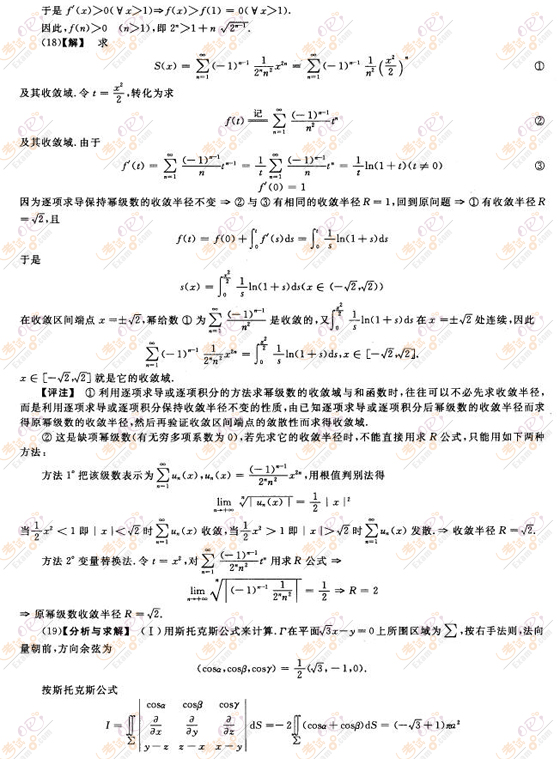 于是 f′(x)>0(∀x>1)⇒f(x)>f(1)=0(∀x>1).
因此,f(n)>0 (n>1),即 2ⁿ>1+n√(2ⁿ⁻¹).
(18)【解】 求
S(x) = ∑_{n=1}^{∞}(-1)^{n-1} 1/(2ⁿn²) x^{2n} = ∑_{n=1}^{∞}(-1)^{n-1} 1/n² (x²/2)ⁿ ①
及其收敛域.令 t = x²/2,转化为求
f(t) 记= ∑_{n=1}^{∞} (-1)^{n-1}/n² tⁿ ②
及其收敛域.由于
f′(t) = ∑_{n=1}^{∞} (-1)^{n-1}/n t^{n-1} = 1/t ∑_{n=1}^{∞} (-1)^{n-1}/n tⁿ = 1/t ln(1+t)(t≠0) ③
f′(0) = 1
因为逐项求导保持幂级数的收敛半径不变 ⇒ ②与③有相同的收敛半径 R=1,回到原问题 ⇒ ①有收敛半径 R
=√2,且
f(t) = f(0) + ∫₀ᵗ f′(s)ds = ∫₀ᵗ 1/s ln(1+s)ds
于是
s(x) = ∫₀^{x²/2} 1/s ln(1+s)ds(x∈(-√2,√2))
在收敛区间端点 x=±√2,幂给数 ① 为 ∑_{n=1}^{∞} (-1)^{n-1}/n² 是收敛的,又∫₀^{x²/2} 1/s ln(1+s)ds 在 x=±√2 处连续,因此
∑_{n=1}^{∞}(-1)^{n-1} 1/(2ⁿn²) x^{2n} = ∫₀^{x²/2} 1/s ln(1+s)ds,x∈[-√2,√2],
x∈[-√2,√2] 就是它的收敛域.
【评注】 ① 利用逐项求导或逐项积分的方法求幂级数的收敛域与和函数时,往往可以不必先求收敛半径,
而是利用逐项求导或逐项积分保持收敛半径不变的性质,由已知逐项求导或逐项积分后幂级数的收敛半径而求
得原幂级数的收敛半径,然后再验证收敛区间端点的敛散性而求得收敛域.
② 这是缺项幂级数(有无穷多项系数为 0),若先求它的收敛半径时,不能直接用求 R 公式,只能用如下两种
方法:
方法 1° 把该级数表示为 ∑_{n=1}^{∞} uₙ(x),uₙ(x) = (-1)^{n-1}/(2ⁿn²) x^{2n},用根值判别法得
lim_{n→+∞} ⁿ√|uₙ(x)| = 1/2 |x|²
当 1/2 x² < 1 即 |x|<√2 时 ∑_{n=1}^{∞} uₙ(x) 收敛,当 1/2 x² > 1 即 |x|>√2 时 ∑_{n=1}^{∞} uₙ(x) 发散.⇒ 收敛半径 R=√2.
方法 2° 变量替换法.令 t = x²,对 ∑_{n=1}^{∞} (-1)^{n-1}/(2ⁿn²) tⁿ 用求 R 公式 ⇒
lim_{n→+∞} ⁿ√|(-1)^{n-1} 1/(2ⁿn²)| = 1/2 ⇒ R = 2
⇒ 原幂级数收敛半径 R=√2.
(19)【分析与求解】 (Ⅰ)用斯托克斯公式来计算.Γ在平面√3x-y=0上所围区域为∑,按右手法则,法向
量朝前,方向余弦为
(cosα,cosβ,cosγ) = 1/2(√3,-1,0).
按斯托克斯公式
I = ∬_∑ | cosα cosβ cosγ ; ∂/∂x ∂/∂y ∂/∂z ; y-z z-x x-y | dS = -2∬_∑(cosα+cosβ)dS = (-√3+1)πa²